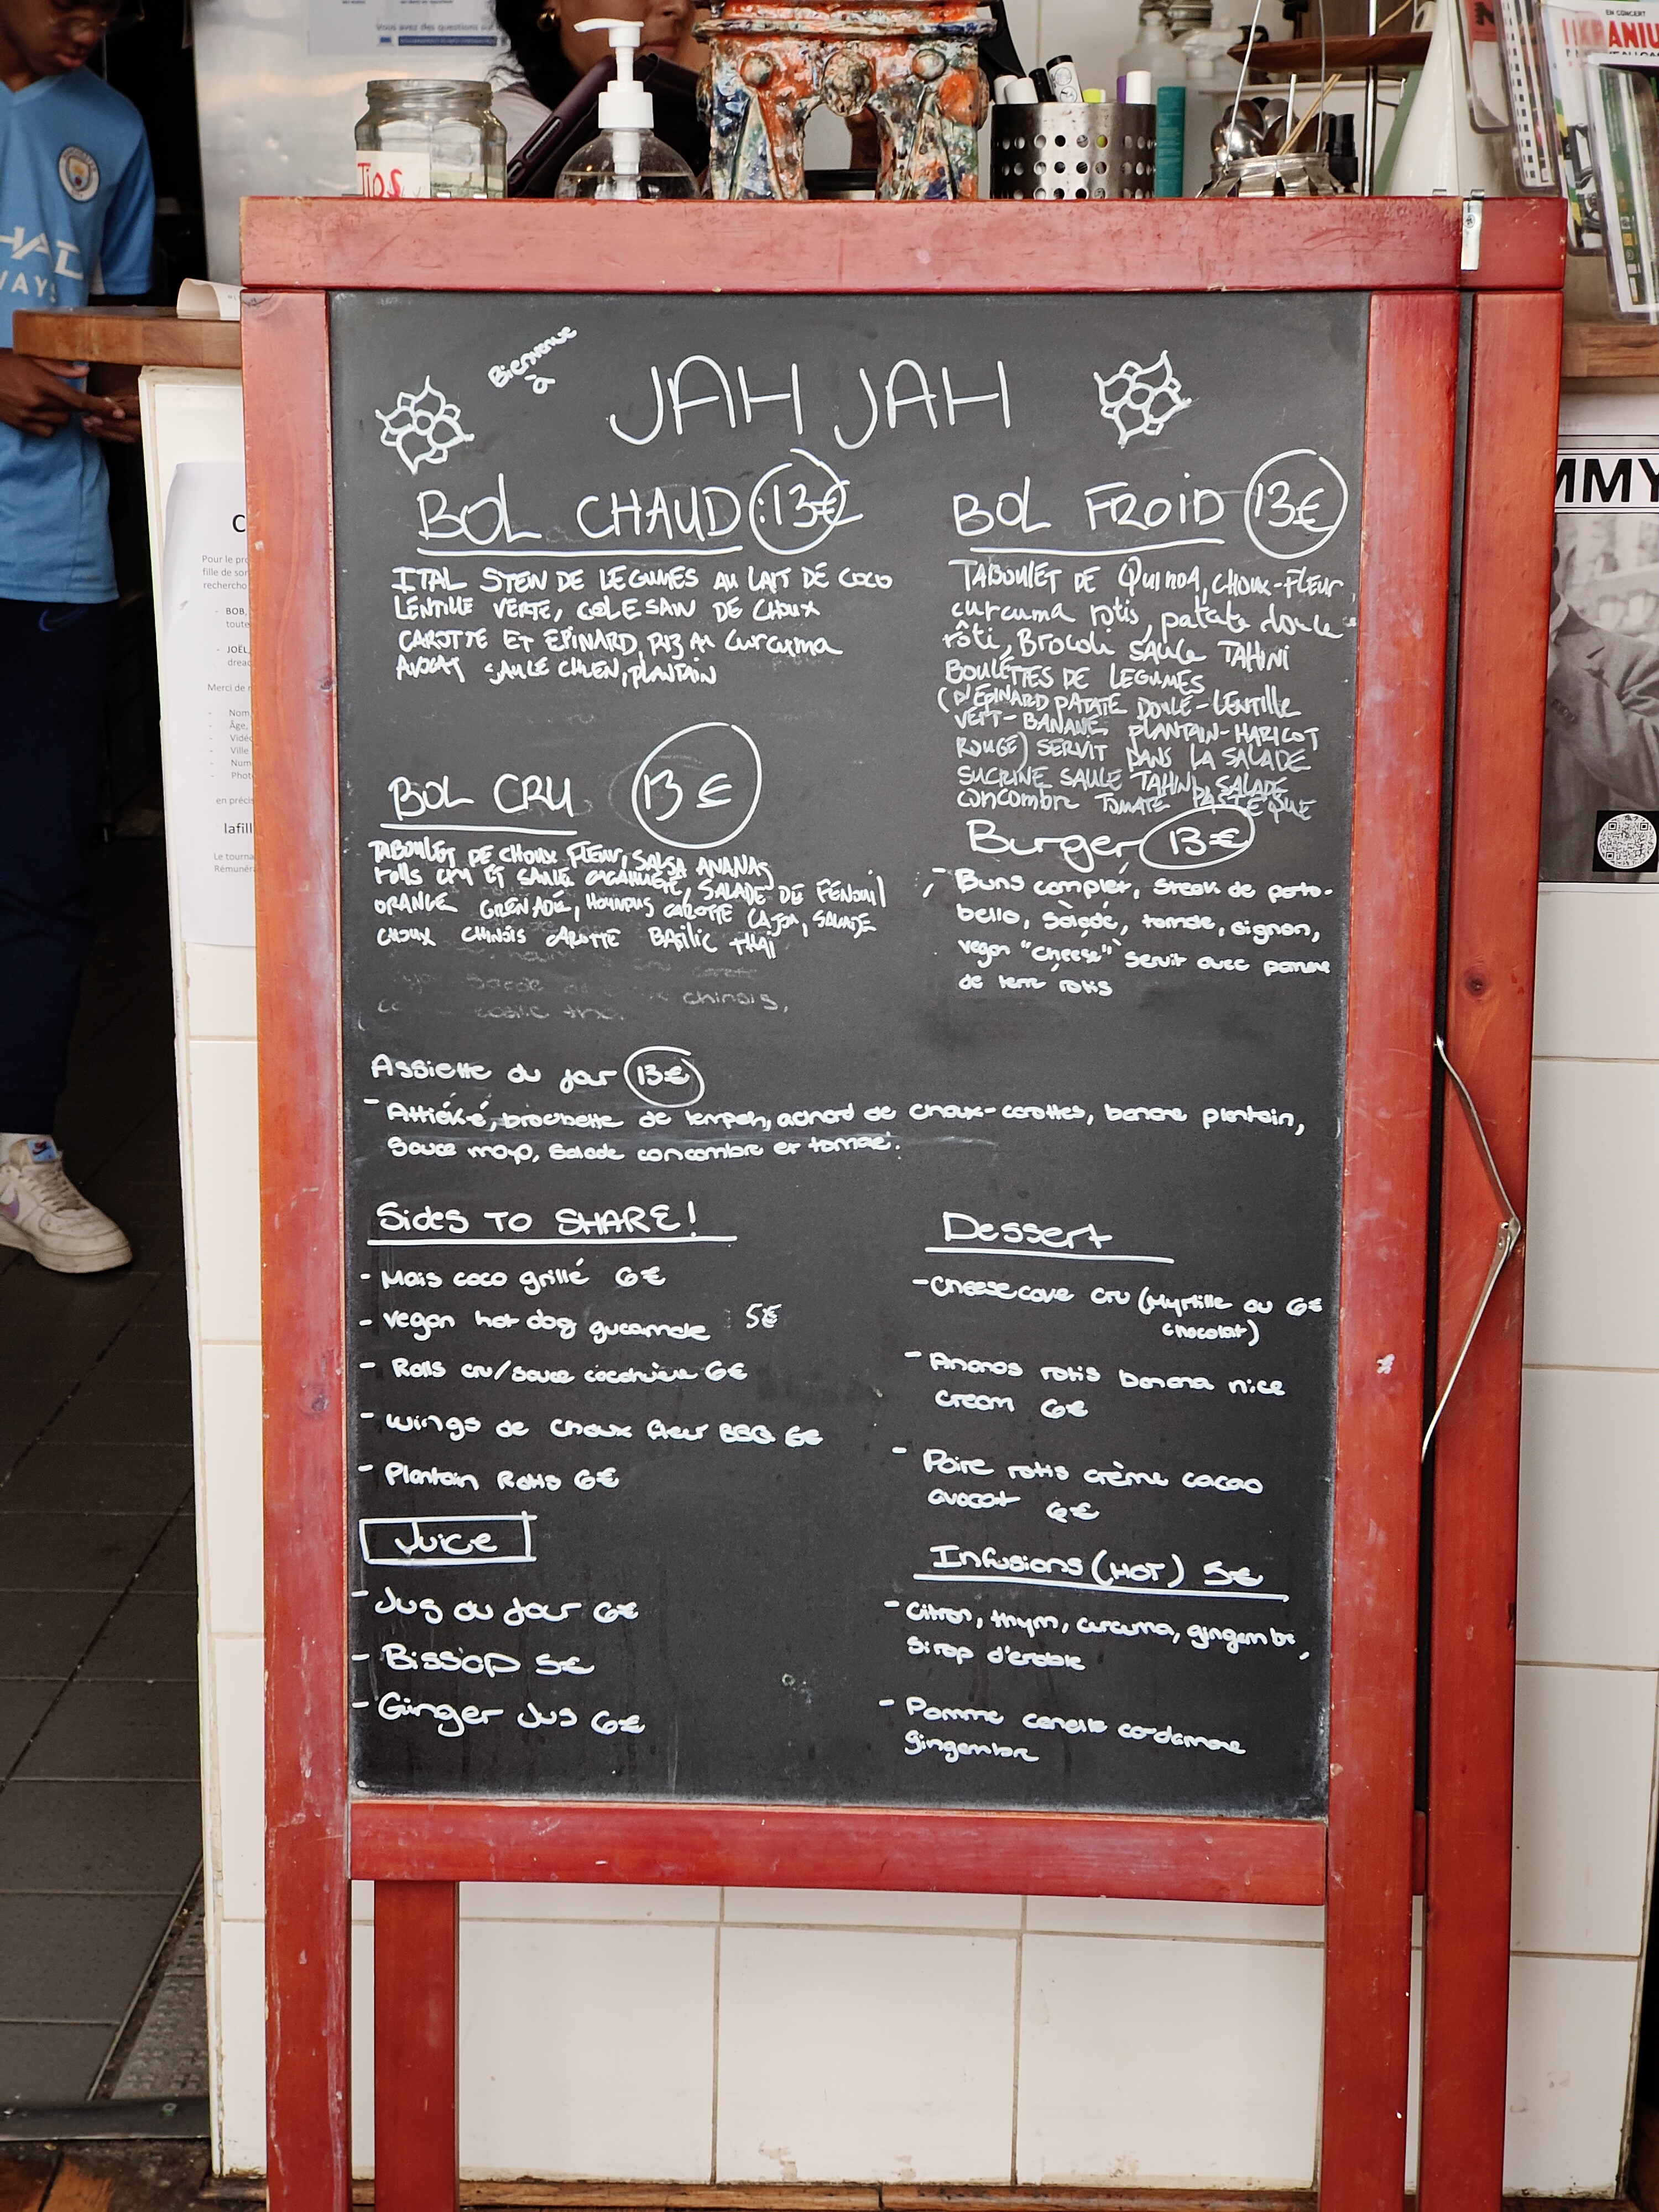 Vous avez des questions sur
TIPS
EN CONCERT
HAD
WAYS
Bienvenue
à
JAH JAH
BOL CHAUD :13€
ITAL STEW DE LEGUMES AU LAIT DE COCO
LENTILLE VERTE, COLESAW DE CHOUX
CAROTTE ET EPINARD, RIZ AU Curcuma
AVOCAT SAUCE CHIEN, PLANTAIN
BOL FROID 13€
TABOULET DE QUINOA, CHOUX-FLEUR,
curcuma rotis, patate douce
rôti, Brocoli SAUCE TAHINI
BOULETTES DE LEGUMES
(D'EPINARD PATATE DOUCE-LENTILLE
VERT-BANANE PLANTAIN-HARICOT
ROUGE) SERVIT DANS LA SALADE
SUCRINE SAUCE TAHINI SALADE
concombre TOMATE PASTEQUE
BOL CRU 13€
TABOULET DE CHOUX FLEUR, SALSA ANANAS
rolls cru ET SAUCE CACAHUETE, SALADE DE FENOUIL
ORANGE GRENADE, HOUMMUS CAROTTE CAJOU, SALADE
CHOUX CHINOIS CAROTTE BASILIC THAI
chinois,
Burger 13€
- Buns complet, steak de porto-
bello, salade, tomate, oignon,
vegan "cheese" servit avec pomme
de terre rotis
Assiette du jour 13€
- Attiéké, brochette de tempeh, achard de choux-carottes, banane plantain,
sauce mayo, salade concombre et tomate.
Sides TO SHARE!
- Mais coco grillé 6€
- vegan hot dog gucamole 5€
- Rolls cru/sauce cacahuète 6€
- wings de choux fleur BBQ 6€
- Plantain Rotis 6€
Dessert
- Cheesecake cru (Myrtille ou 6€
chocolat)
- Ananas rotis banana nice
cream 6€
- Poire rotis crème cacao
avocat 6€
Juice
- Jus du jour 6€
- Bissap 5€
- Ginger Jus 6€
Infusions (HOT) 5€
- citron, thym, curcuma, gingembre,
sirop d'erable
- Pomme canelle cardamome
gingembre
C
Pour le pr
fille de so
recherch
- BOB,
toute
- JOËL,
dread
Merci de
- Nom,
- Âge,
- Vidéo
- Ville
- Num
- Phot
en précis
lafill
Le tourna
Rémunér
MMY